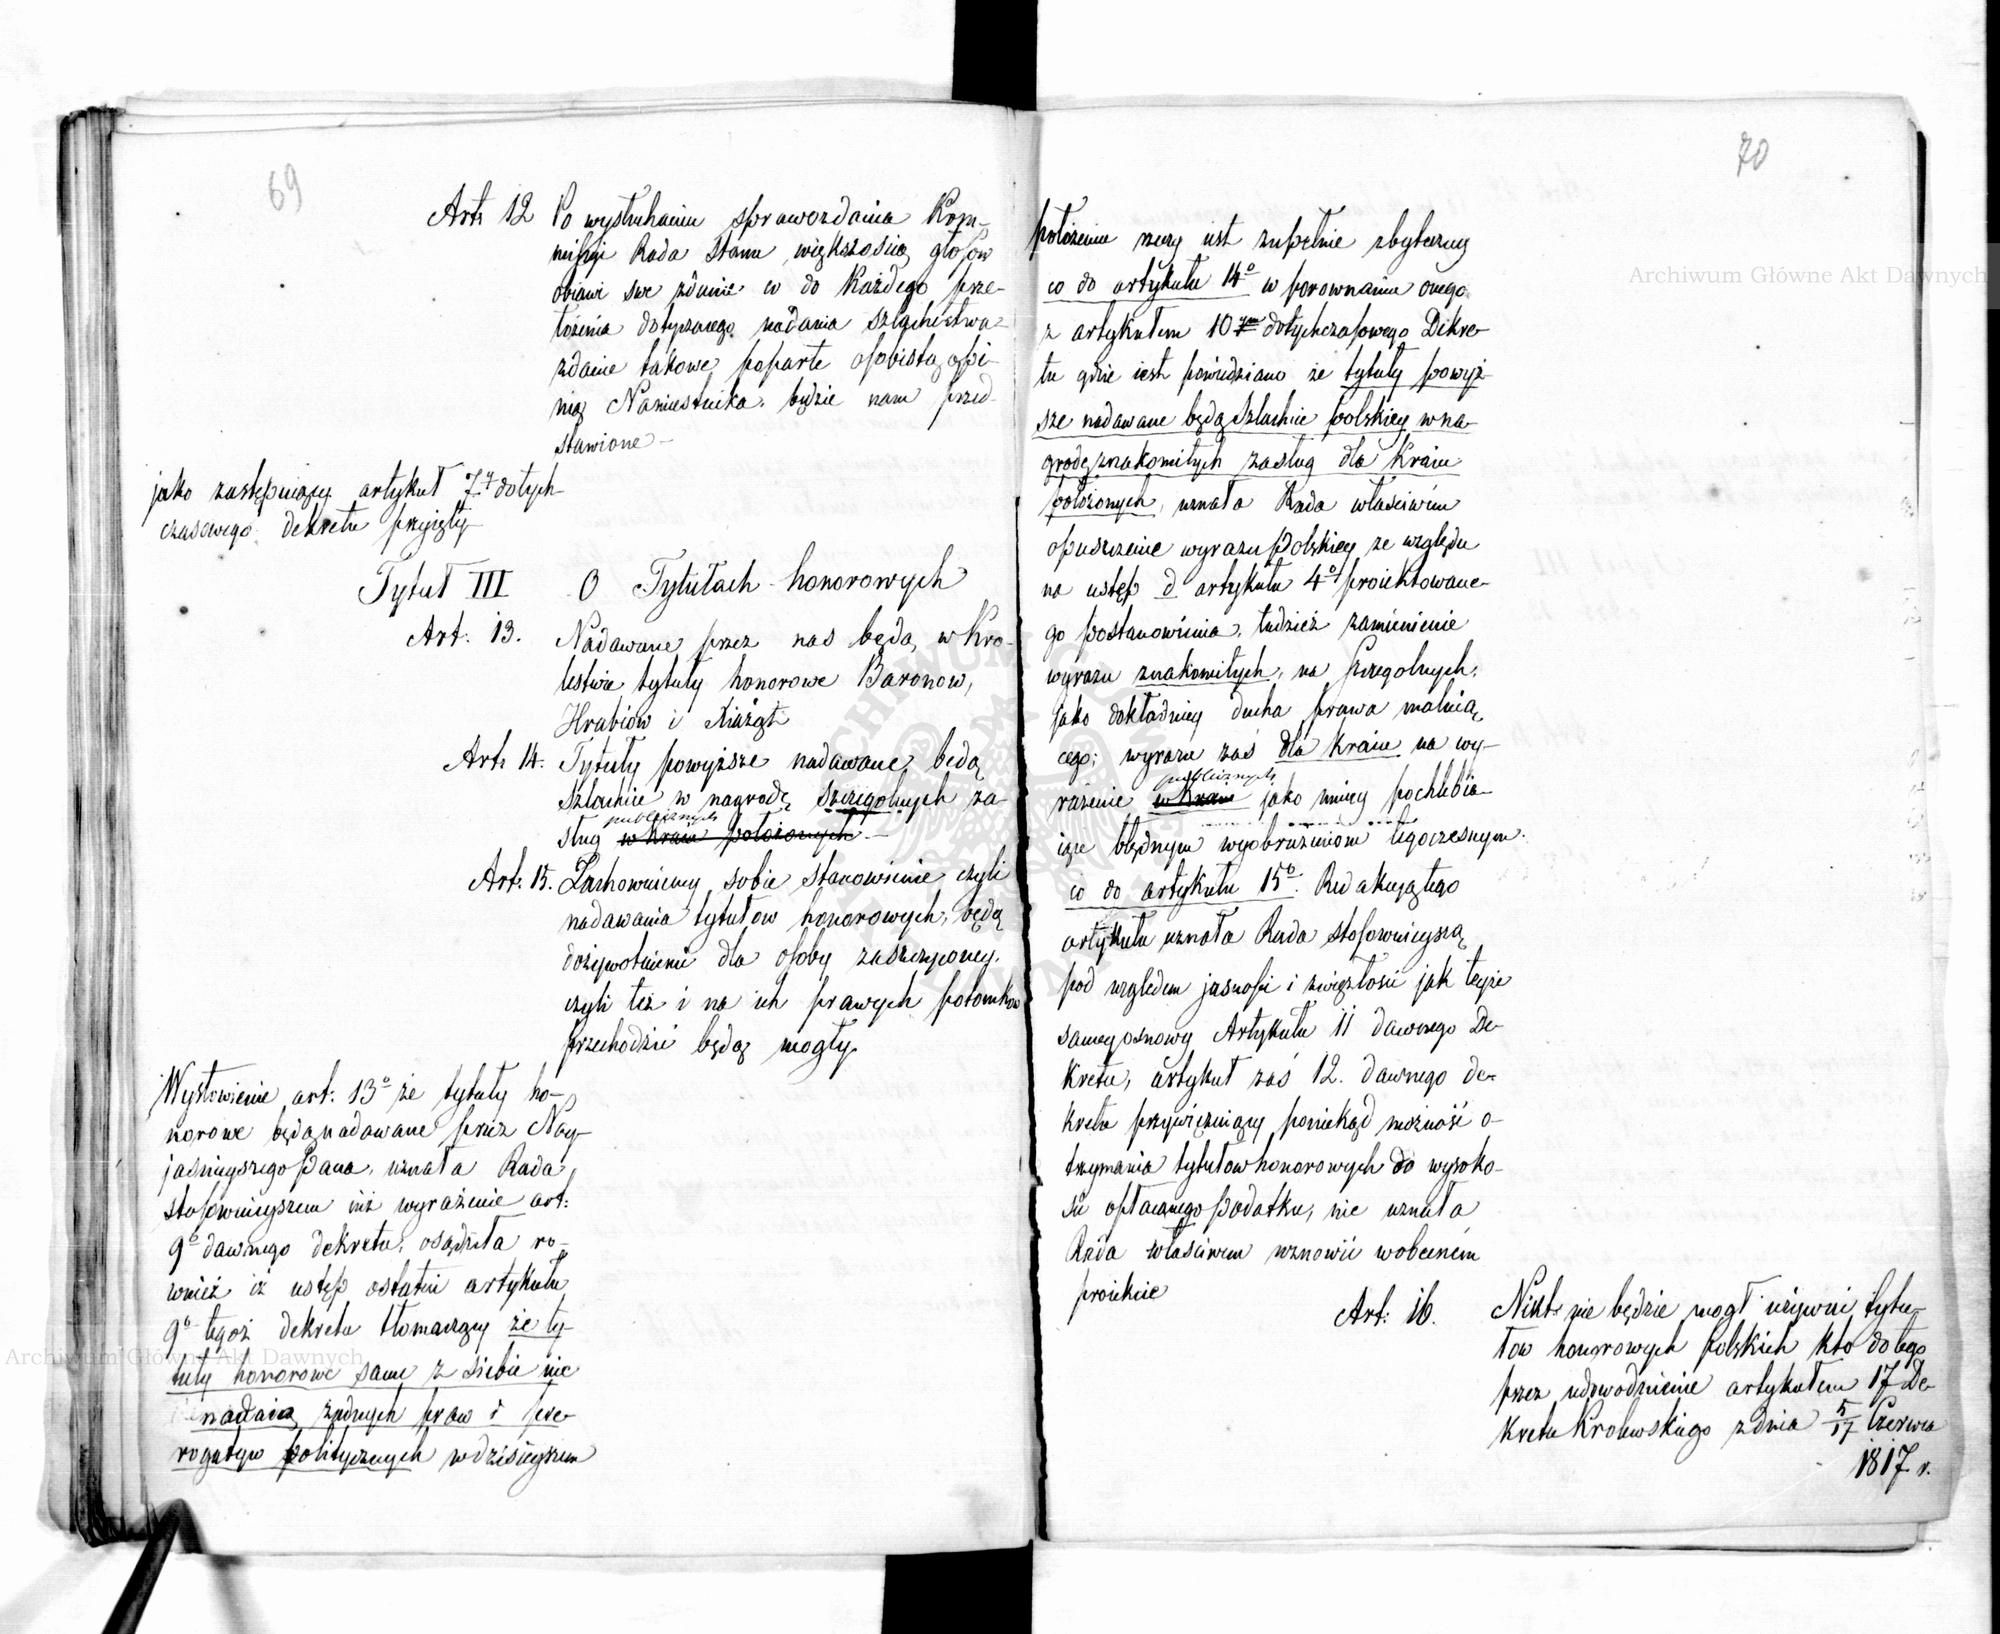 69
Art. 12 Po wysłuchaniu sprawozdania Kom-
missyi Rada Stanu większością głosów
obiawi swe zdanie co do każdego prze-
łożenia dotyczącego nadania szlachectwa
zdanie takowe poparte osobistą opi-
nią Namiestnika będzie nam przed-
stawione –
jako zastępuiący artykuł 7y dotych-
czasowego dekretu przyięty
Tytuł III O Tytułach honorowych
Art. 13. Nadawane przez nas będą w Kró-
lestwie tytuły honorowe Baronow,
Hrabiow i Xiążąt
Art. 14. Tytuły powyższe nadawane będą
szlachcie w nagrodę szczególnych za-
publicznych
sług w kraiu położonych –
Art. 15. Zachowuiemy sobie stanowienie czyli
nadawania tytułow honorowych, będą
dożywotniemi dla osoby zaszczyconey,
czyli też i na ich prawych potomków
przechodzić będą mogły.
Wysłowienie art: 13o że tytuły ho-
norowe będą nadawane przez Nay-
jaśnieyszego Pana, uznała Rada
stosownieyszem niż wyrażenie art:
9o dawnego dekretu, osądziła ro-
wnież iż ustęp ostatni artykułu
9o tegoż dekretu tłomaczący że ty-
tuły honorowe same z siebie nie
nadaią żadnych praw i pre-
rogatyw politycznych w dzisieyszem
70
położeniu rzeczy iest zupełnie zbyteczny
co do artykułu 14o w porownaniu onego
z artykułem 10ym dotychczasowego Dekre-
tu gdzie iest powiedziano że tytuły powyż-
sze nadawane będą Szlachcie polskiey w na-
grodę znakomitych zasług dla Kraiu
położonych, uznała Rada właściwém
opuszczenie wyrazu Polskiey ze względu
na ustęp d artykułu 4o proiektowane-
go postanowienia, tudzież zamienienie
wyrazu znakomitych, na szczegolnych,
jako dokładniey ducha prawa maluią-
cego; wyrazu zaś dla kraiu na wy-
publicznych
rażenie w Kraiu jako mniey pochlebia-
iące błędnym wyobrażeniom tegoczesnym.
co do artykułu 15o. Redakcyą tego
artykułu uznała Rada stosownieyszą
pod względem jasności i zwięzłości jak teyże
samey osnowy Artykułu 11 dawnego De-
kretu, artykuł zaś 12. dawnego de-
kretu przywięzuiący poniekąd możność o-
trzymania tytułow honorowych do wysoko-
ści opłacanego podatku, nie uznała
Rada właściwem wznowić w obecném
proiekcie
Art: 16. Nikt nie będzie mogł używać tytu-
łow honorowych polskich kto do tego
przez udowodnienie artykułem 17 De-
kretu Krolewskiego z dnia 5/17 Czerwca
1817 r.
Archiwum Główne Akt Dawnych
Archiwum Główne Akt Dawnych